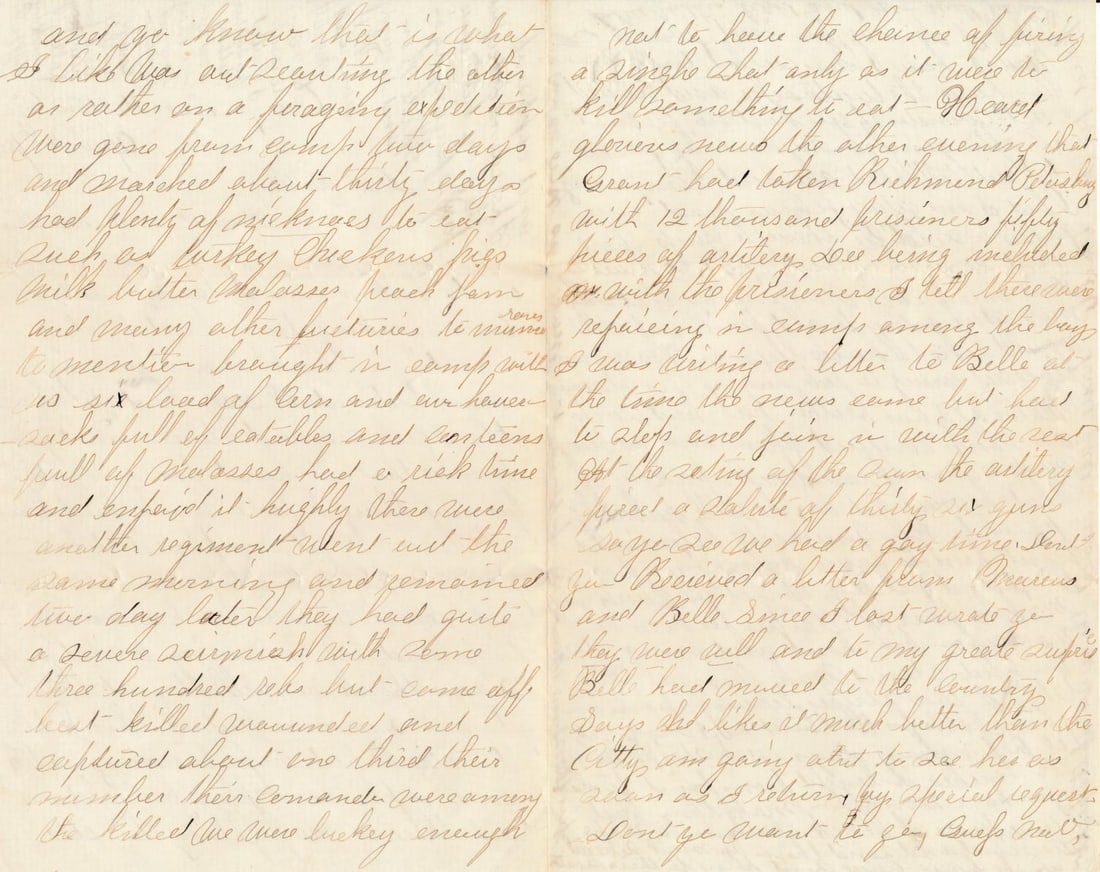 and yo know that is what
I like Was out scouting the other
or rather on a forageing expedition
were gone from camp two days
and marched about thirty days
had plenty of nicknaes to eat
such as turkey Chickens pigs
Milk butter Molasses peach jam
and many other luxuries to
to mention brought in camp with
us six load of Corn and our haver-
-sacks full of eatables and canteens
full of Molasses had a rich time
and enjoyd it highly there were
another regiment went out the
same morning and remained
two day later they had quite
a severe scirmish with some
three hundred rebs but came off
best killed wounded and
captured about one third their
number their comander were among
the killed We were luckey enough
not to have the chance of firing
a single shot only as it were to
kill something to eat - Heard
glorious news the other evening that
Grant had taken Richmond Petersburg
with 12 thousand prisioners fifty
pieces of artilery Lee being included
with the prisioners I tell there were
rejoiceing in camp among the boys
I was writing a letter to Belle at
the time the news came but had
to stop and join in with the rest
At the seting of the sun the artilery
fired a salute of thirty six guns
so ye see we had a gay time. Dont
you Recieved a letter from Marcus
and Belle Since I last wrote yo
they were well and to my greate suprise
Belle had moved to the country
Says she likes it much better than the
Citty, am going out to see her as
soon as I return, by special request.
Dont yo want to go, Guess not,